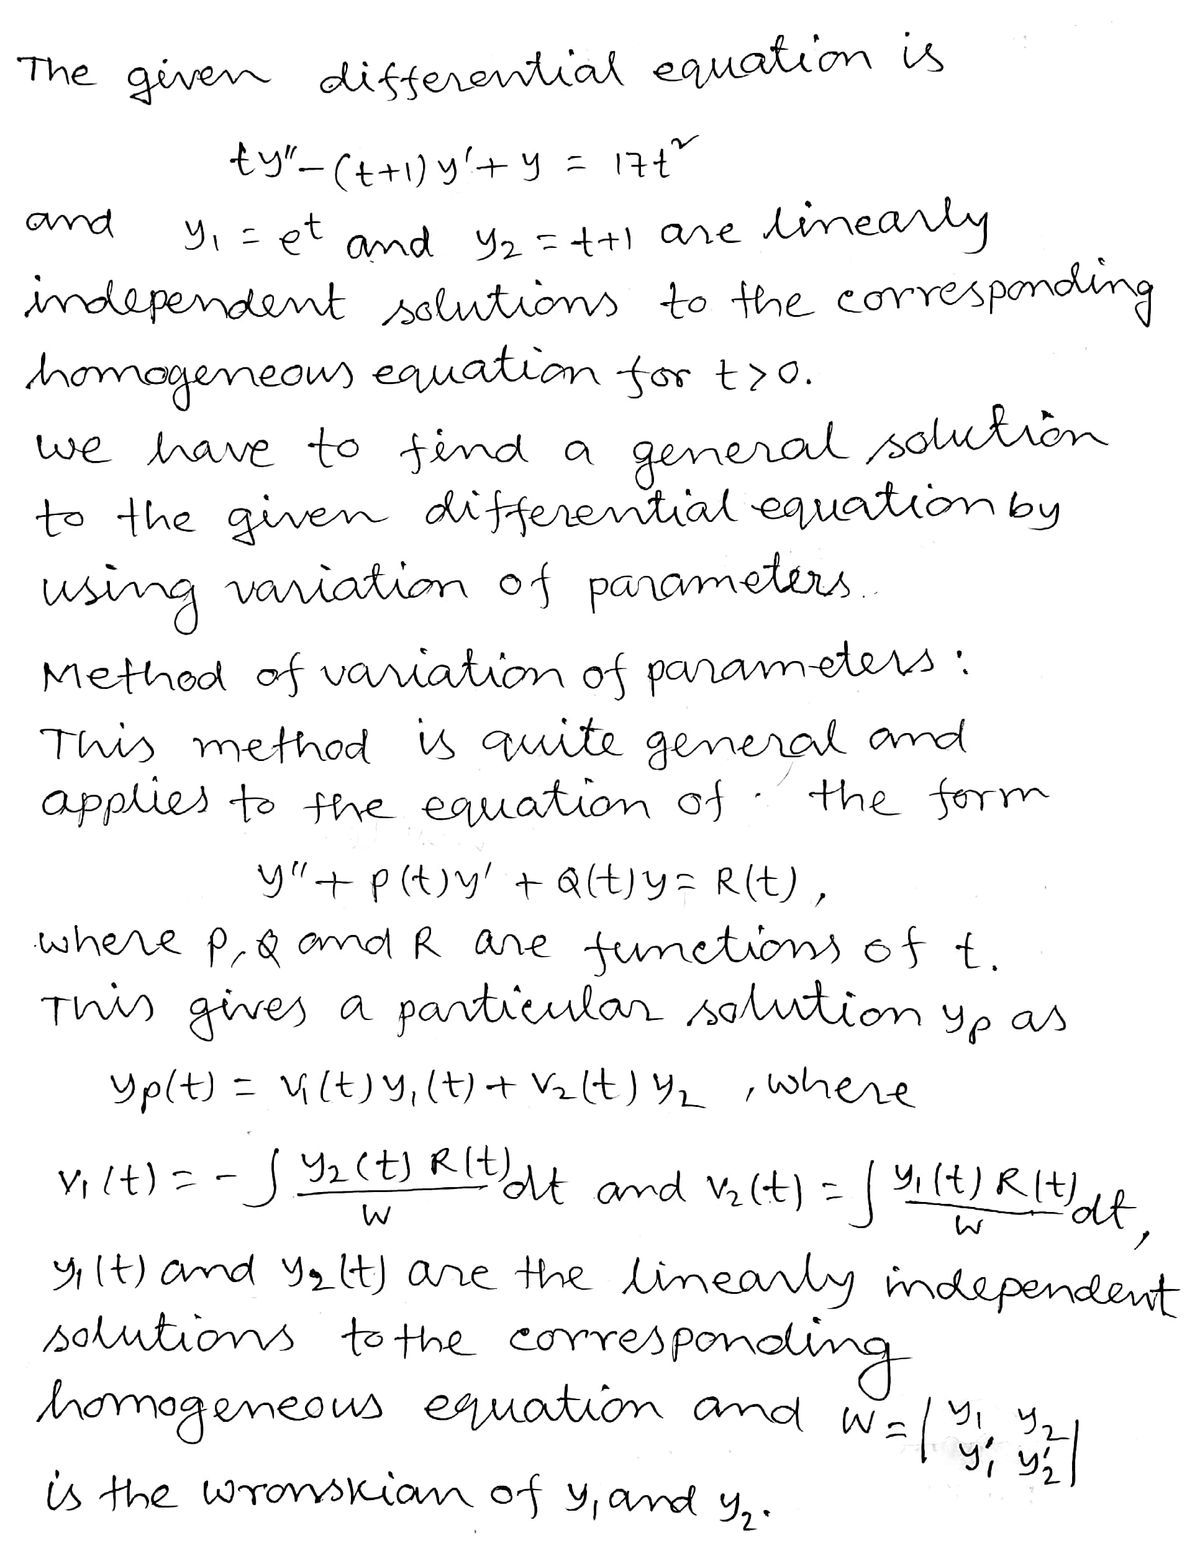 The given differential equation is
ty″-(t+1)y′+y = 17t²
and y₁ = eᵗ and y₂ = t+1 are linearly
independent solutions to the corresponding
homogeneous equation for t>0.
we have to find a general solution
to the given differential equation by
using variation of parameters..
Method of variation of parameters :
This method is quite general and
applies to the equation of the form
y″ + P(t)y′ + Q(t)y = R(t) ,
where P, Q and R are functions of t.
This gives a particular solution yₚ as
yₚ(t) = v₁(t)y₁(t) + v₂(t) y₂ , where
v₁(t) = - ∫ y₂(t) R(t)/W dt and v₂(t) = ∫ y₁(t) R(t)/W dt,
y₁(t) and y₂(t) are the linearly independent
solutions to the corresponding
homogeneous equation and W = |y₁ y₂; y₁′ y₂′|
is the wronskian of y₁ and y₂.